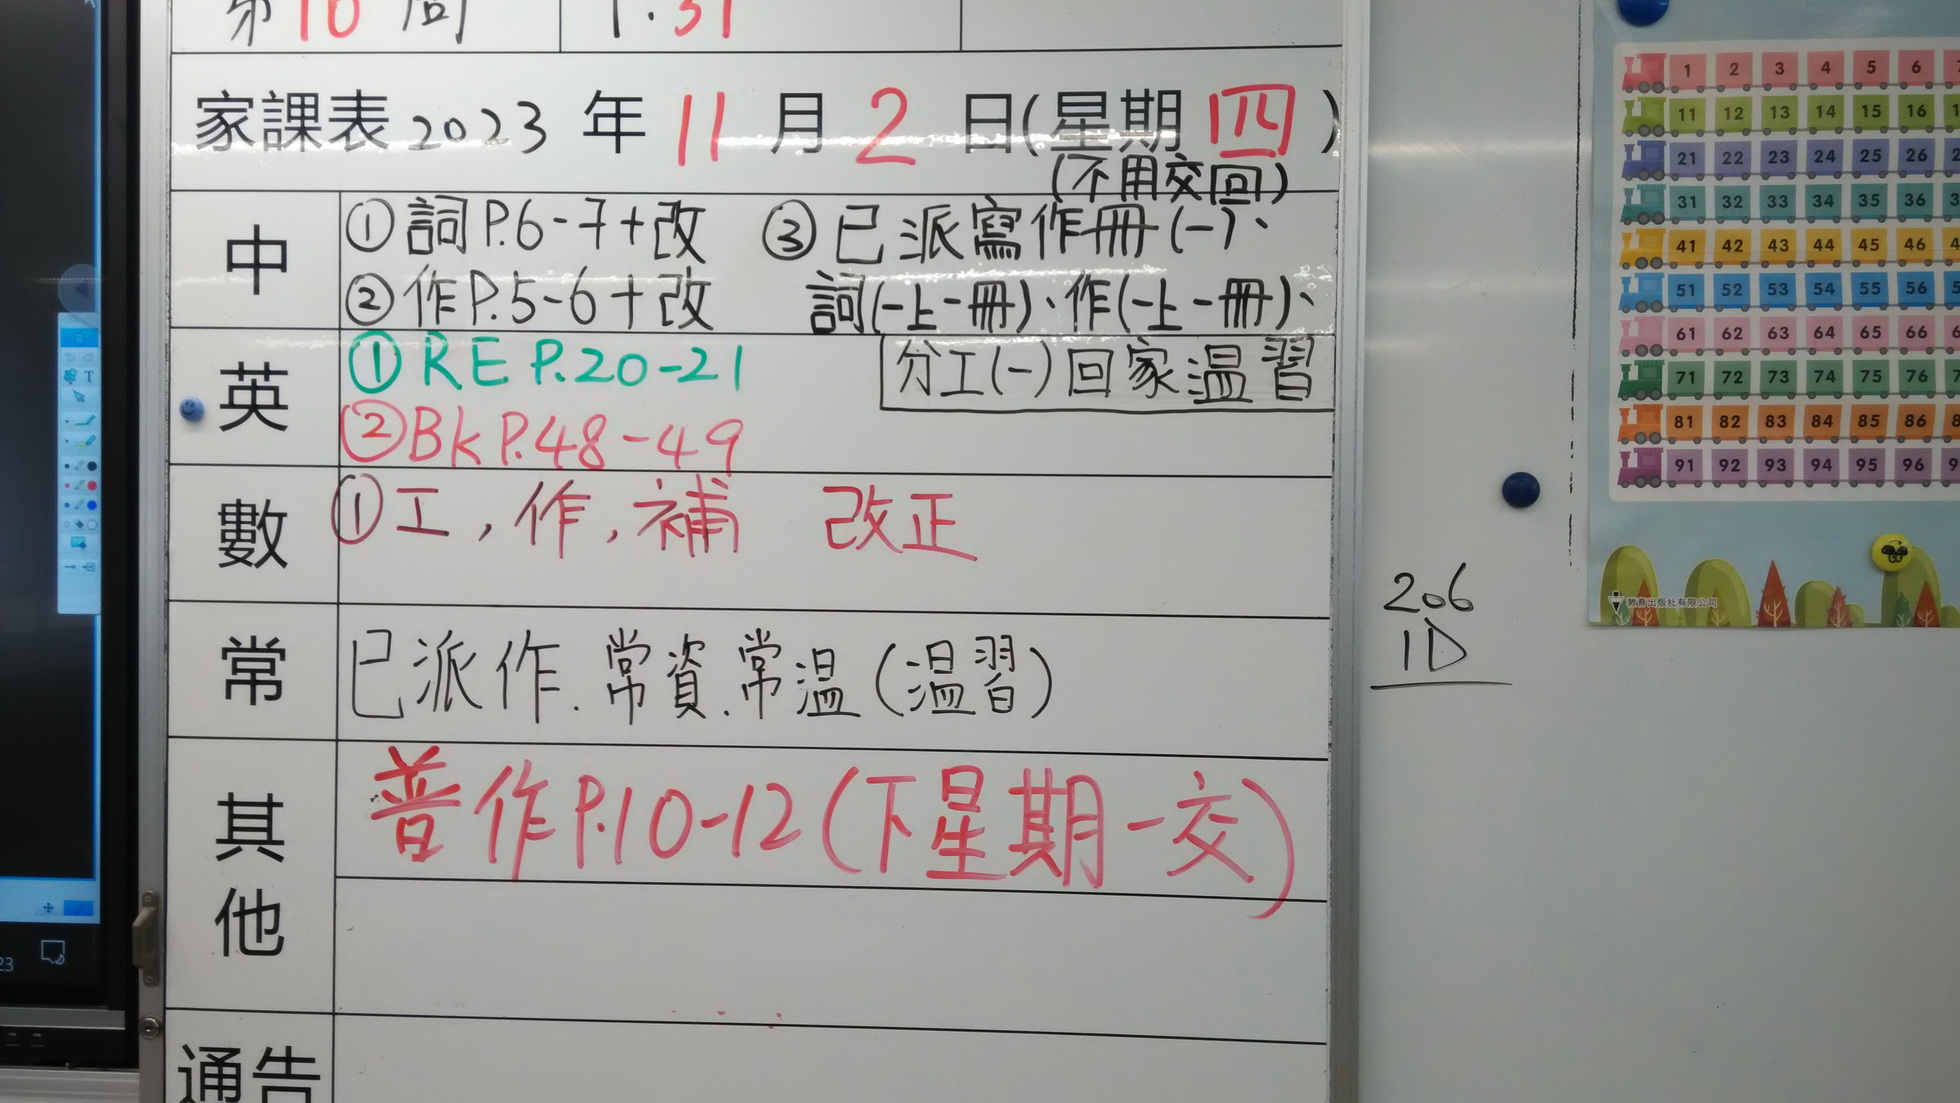 第10周 1.31
家課表2023年11月2日(星期四)
(不用交回)
中
①詞P.6-7+改 ③已派寫作冊(一)、
②作P.5-6+改 詞(一上一冊)、作(一上一冊)、
分工(一)回家溫習
英
①RE P.20-21
②Bk P.48-49
數
①工,作,補 改正
常
已派作.常資.常溫(溫習)
其他
普作P.10-12(下星期一交)
通告
206
1D
1 2 3 4 5 6
11 12 13 14 15 16
21 22 23 24 25 26
31 32 33 34 35 36
41 42 43 44 45 46
51 52 53 54 55 56
61 62 63 64 65 66
71 72 73 74 75 76
81 82 83 84 85 86
91 92 93 94 95 96
教育出版社有限公司
23